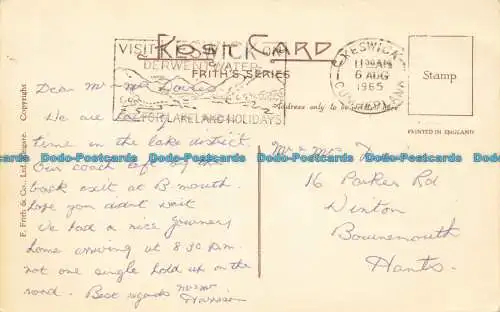 VISIT KESWICK ON
DERWENTWATER
FOR LAKELAND HOLIDAYS
POST CARD
FRITH'S SERIES
KESWICK
11 AM
6 AUG
1965
CUMBERLAND
Stamp
Address only to be written here
PRINTED IN ENGLAND
F. Frith & Co., Ltd., Reigate. Copyright
Dear Mr & Mrs Davies
We are
time in the lake district.
Our coach left by the
back exit at B-mouth.
hope you didnt wait
We had a nice journey
home arriving at 8 30 P.m.
not one single hold up on the
road. Best regards Mr & Mrs
Harrison
Mr & Mrs
16 Parker Rd
Winton
Bournemouth
Hants.
Dodo-Postcards Dodo-Postcards Dodo-Postcards Dodo-Postcards Dodo-Postcards Dodo-Postcards